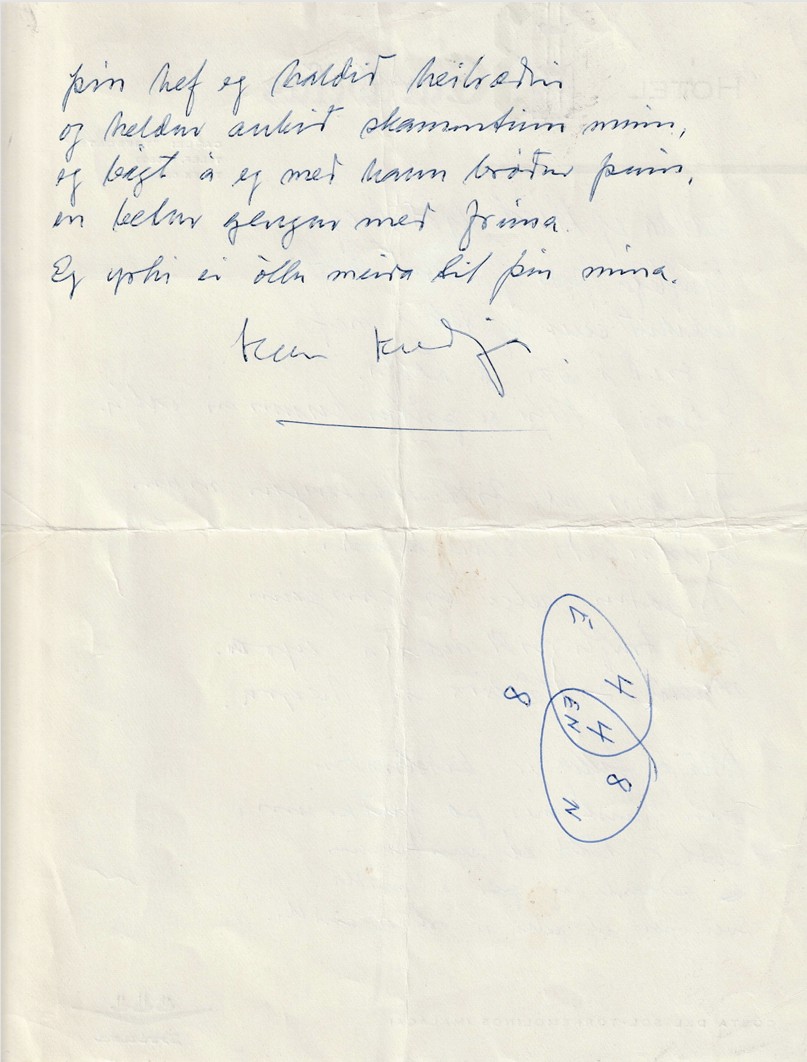 Þín hef eg haldið heilræðin
og heldur aukið skammtinn minn,
og bágt á eg með hann bróður þinn,
en betur gengur með frúna.
Eg yrki ei öllu meira til þín núna.
Kær kveðja.
E
4
EN
4
8
N
8